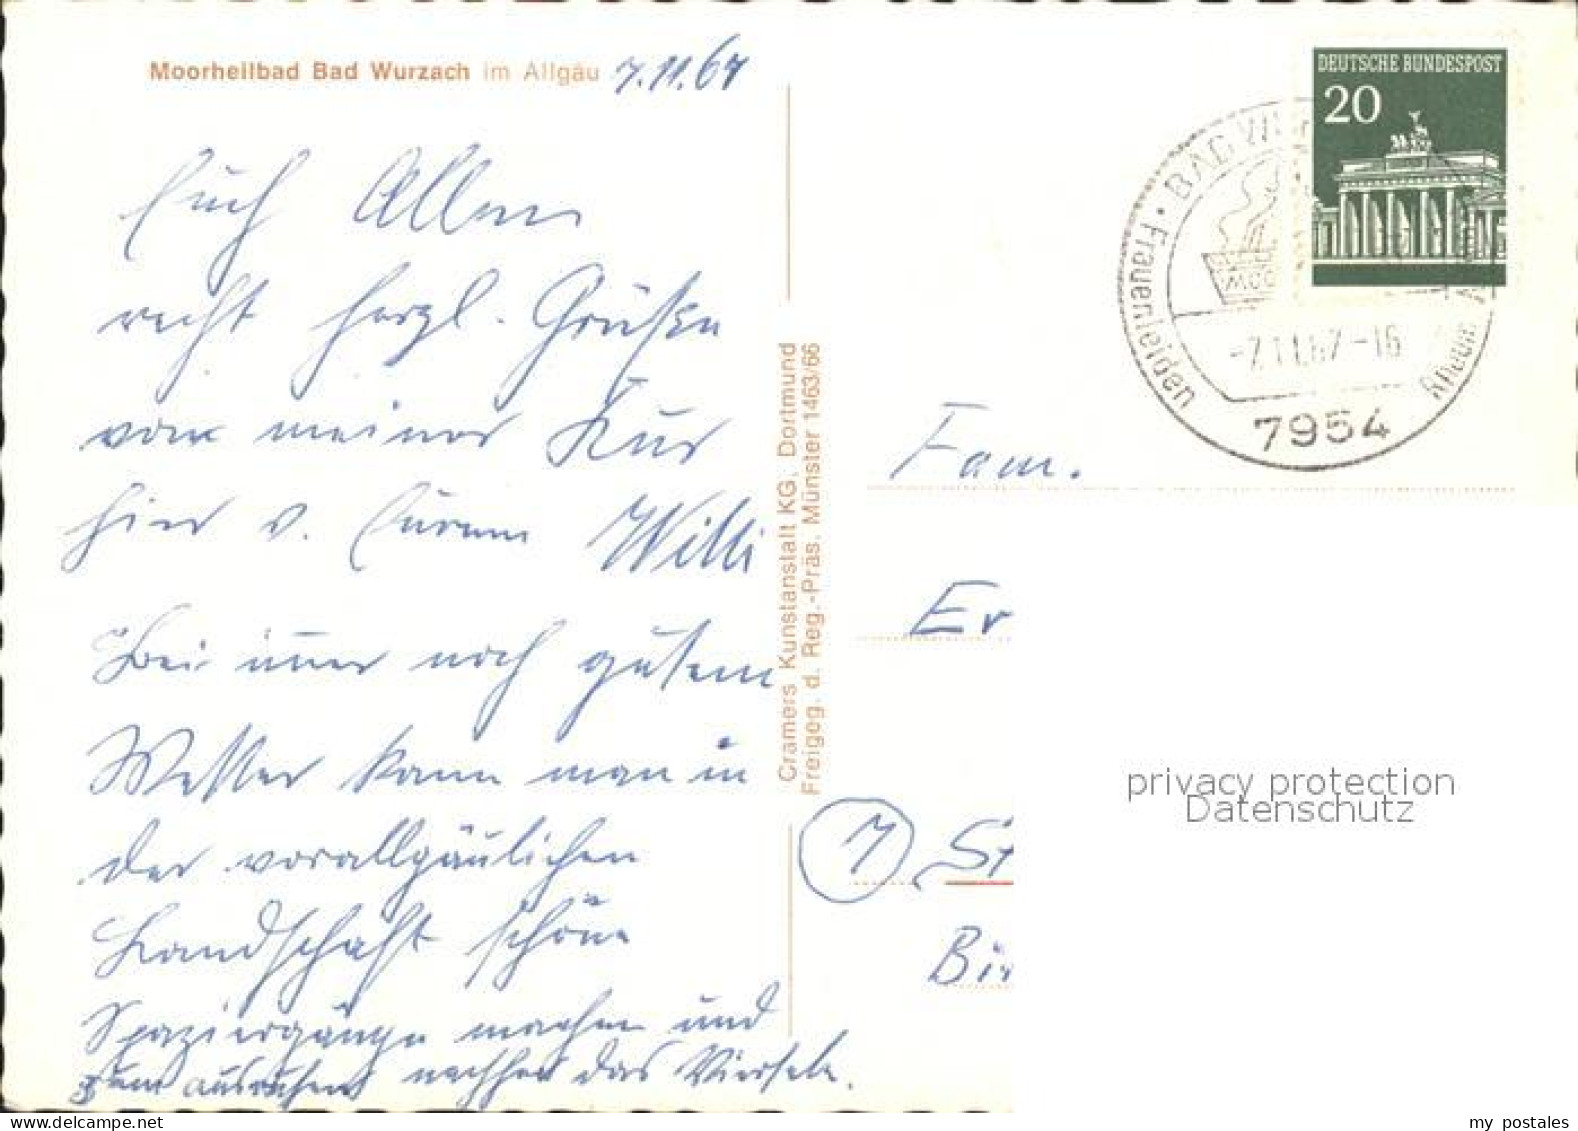 Moorheilbad Bad Wurzach im Allgäu 7.11.67
Euch Allen
recht herzl. Grüße
von meiner Kur
hier v. Eurem Willi
Bei immer noch gutem
Wetter kann man in
der vorallgäulichen
Landschaft schöne
Spaziergänge machen und
zum ausruhen nachher das Viertele.
Cramers Kunstanstalt KG, Dortmund
Freigeg. d. Reg.-Präs. Münster 1463/66
DEUTSCHE BUNDESPOST
20
BAD WUR
Frauenleiden
MOO
-7.11.67-16
Rheum
7954
Fam.
Er
7 St
Bi
privacy protection
Datenschutz
www.delcampe.net
my_postales